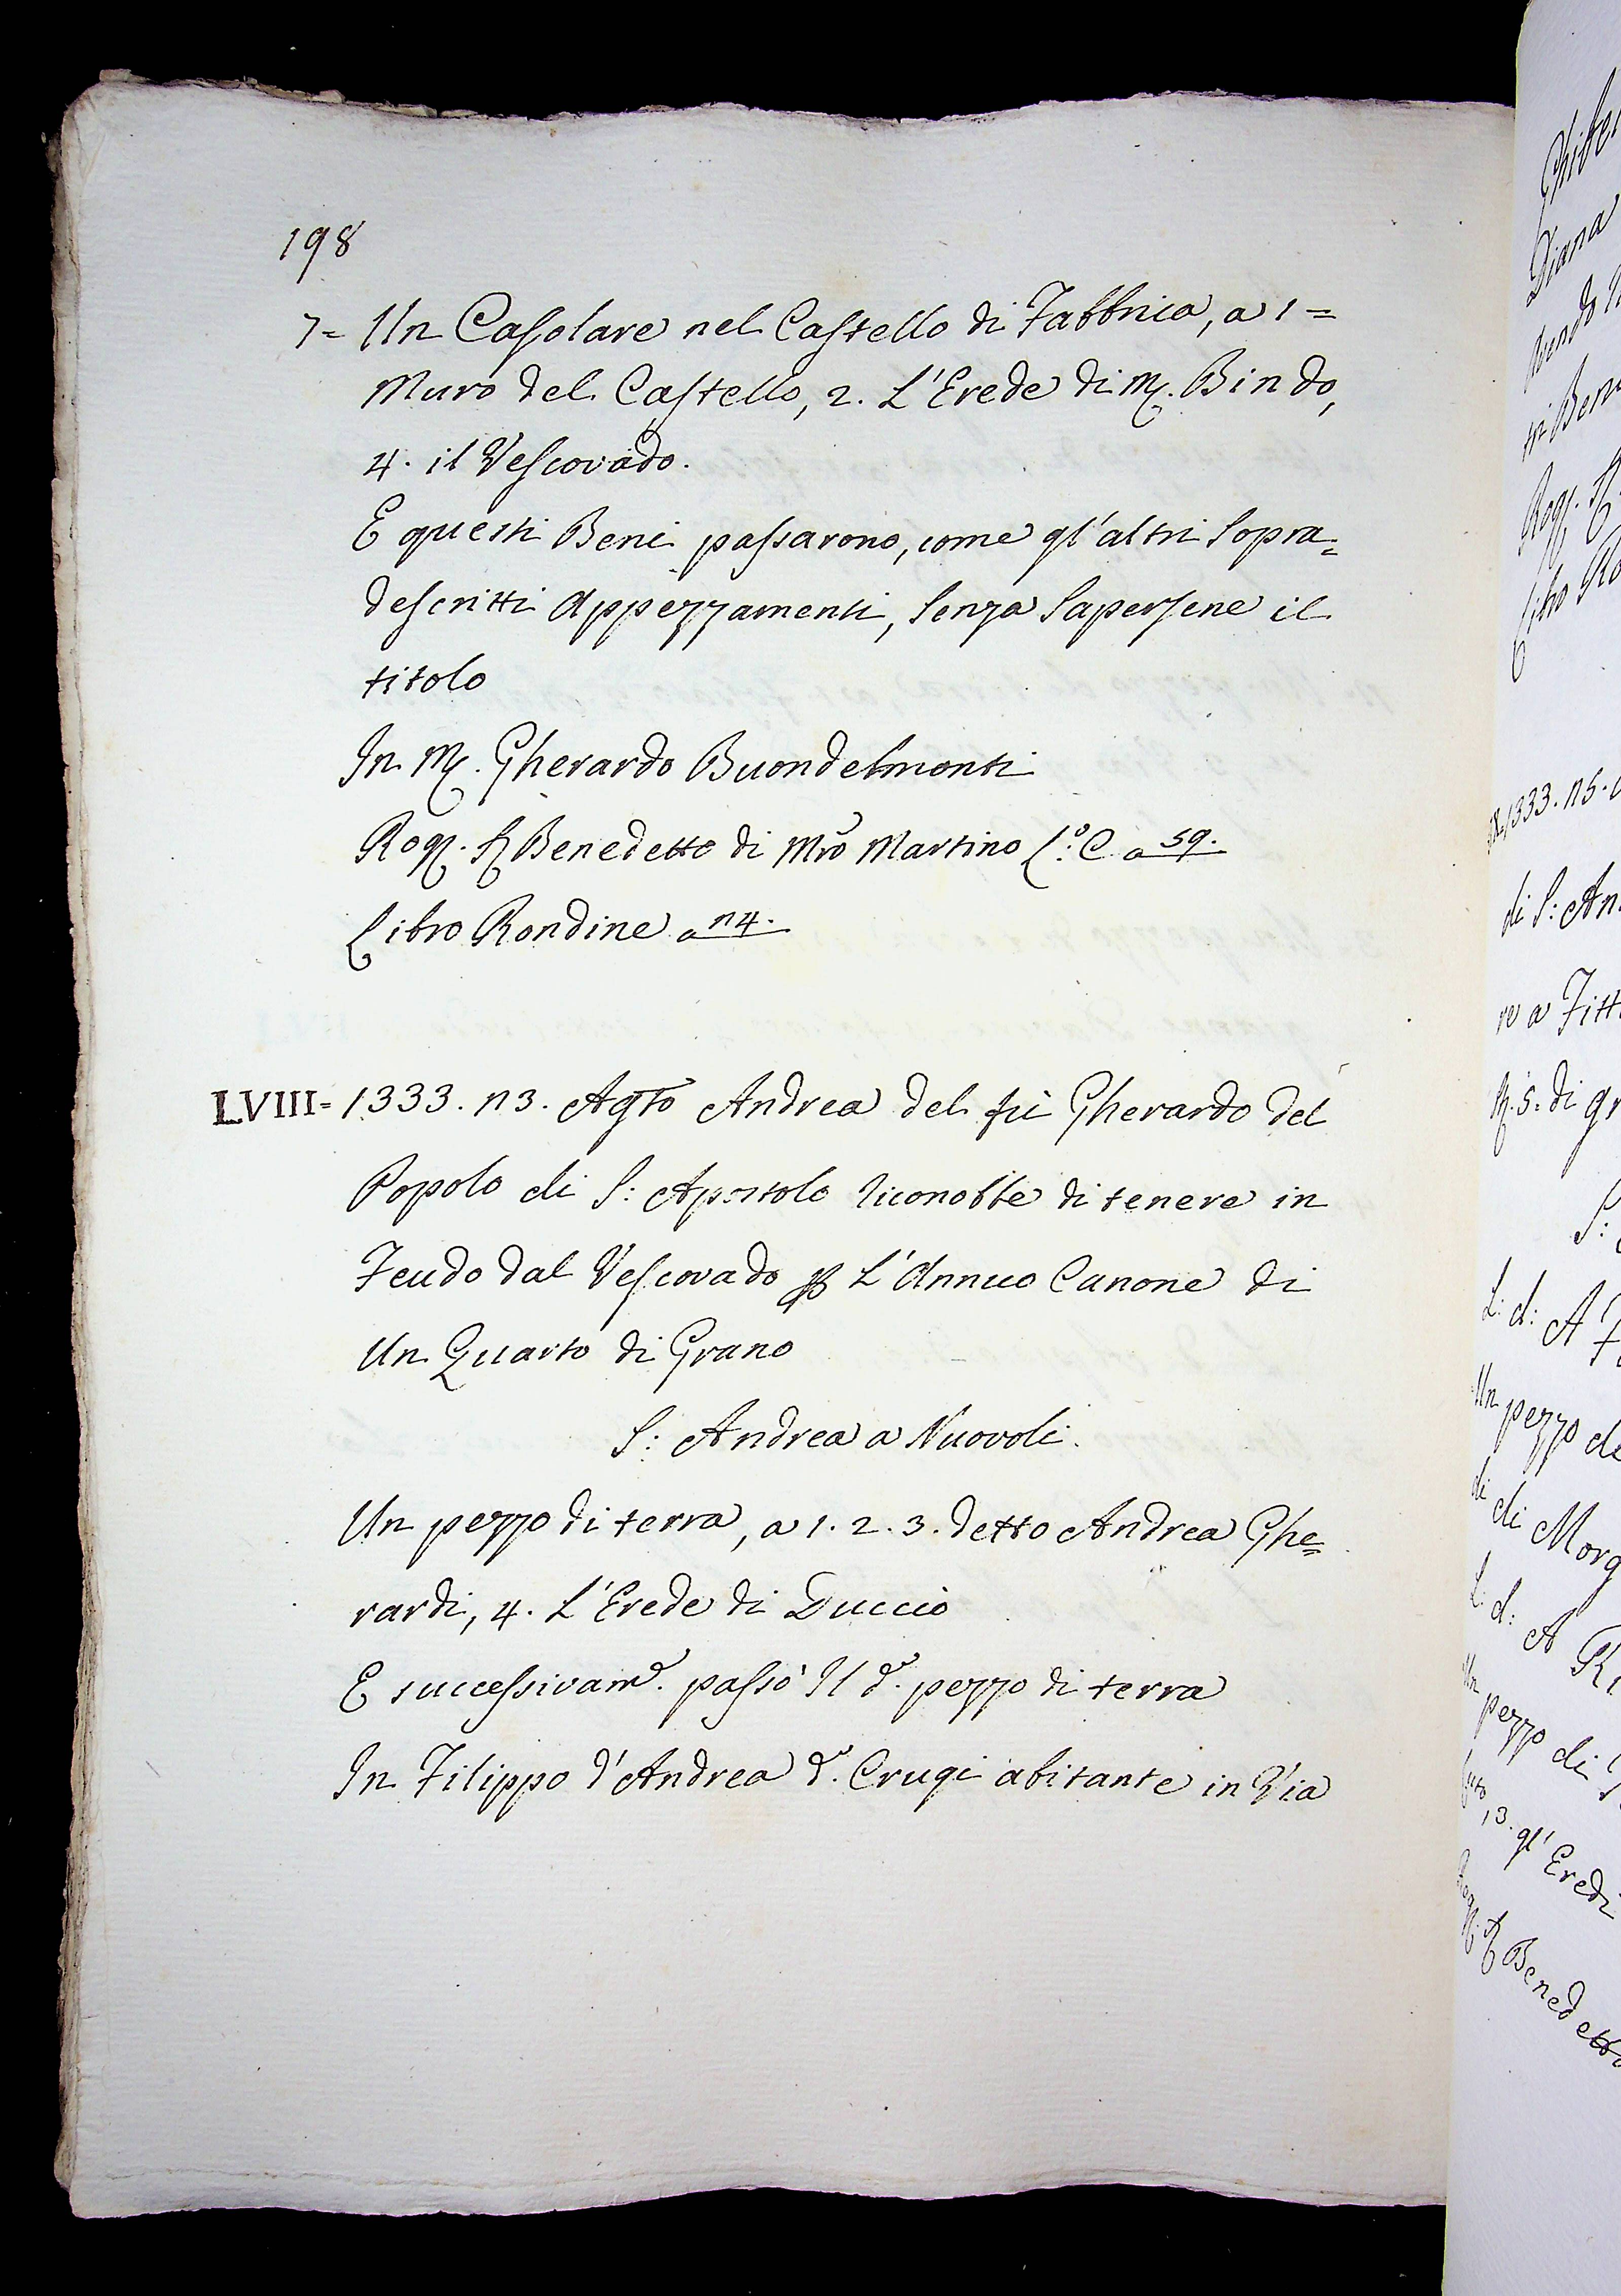 198
7= Un Casolare nel Castello di Fabbrica, a 1=
Muro del Castello, 2. L'Erede di M. Bindo,
4. il Vescovado.
E questi Beni passarono, come gl'altri sopra=
descritti Appezzamenti, senza sapersene il
titolo
In M. Gherardo Buondelmonti
Rog. Benedetto di Mro Martino L:o C a 59.
Libro Rondine a 114.
LVIII= 1333. 13. Agto Andrea del fù Gherardo del
Popolo di S: Apostolo riconobbe di tenere in
Feudo dal Vescovado L'Annuo Canone di
Un Quarto di Grano
S: Andrea a Nuovoli.
Un pezzo di terra, a 1. 2. 3. detto Andrea Ghe=
rardi, 4. L'Erede di Duccio
E successivam.e passò Il d.o pezzo di terra
In Filippo d'Andrea d.o Crugi abitante in Via
Diana
in Ben
Libro Ro
1333. 15.
di S: An
re a Fitt
5. di gr
S:
L: d: A
Un pezzo di
di Morg
L: d: A Ri
Un pezzo di
13. gl'Eredi
Benedetto